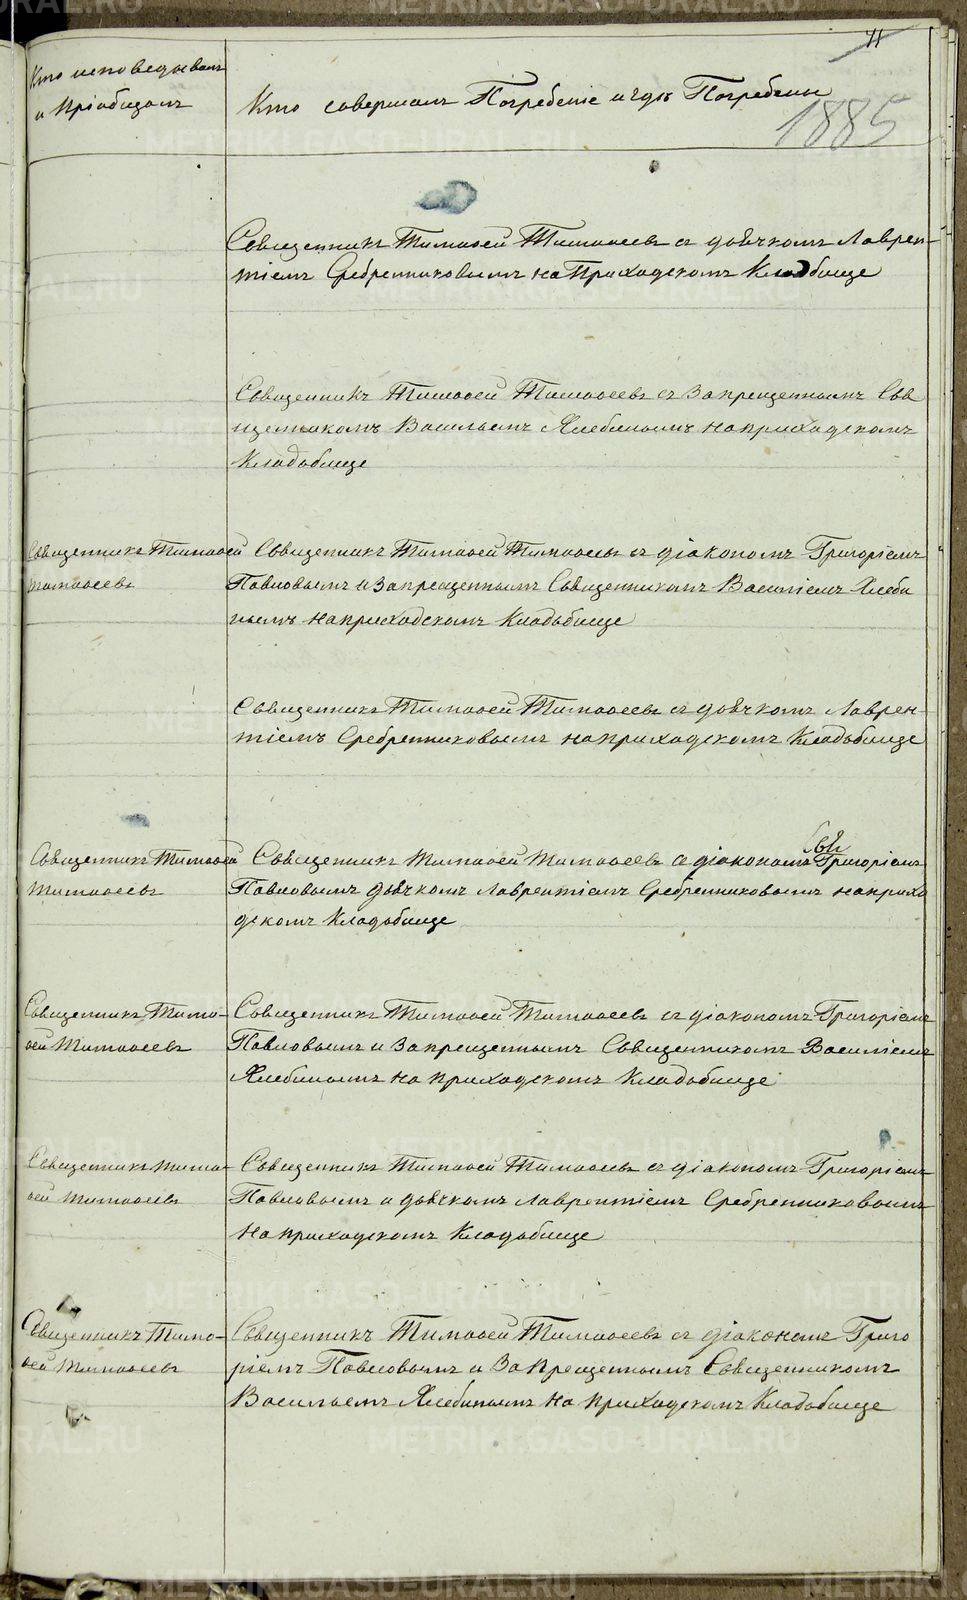 11
Кто исповедывалъ
и пріобщалъ
Кто совершалъ Погребеніе и гдѣ Погребены
1885
Священникъ Тимофей Тимофеевъ съ дьячкомъ Лаврен-
тіемъ Сребренниковымъ на Приходскомъ Кладбище
Священникъ Тимофей Тимофеевъ съ Запрещеннымъ Свя
щенникомъ Васильемъ Хлебинымъ на приходскомъ
Кладбище
Священникъ Тимофей
Тимофеевъ
Священникъ Тимофей Тимофеевъ съ діакономъ Григоріемъ
Павловымъ и Запрещеннымъ Священникомъ Василіемъ Хлеби
нымъ на приходскомъ Кладбище
Священникъ Тимофей Тимофеевъ съ дьячкомъ Лаврен-
тіемъ Сребренниковымъ на приходскомъ Кладбище
Священникъ Тимофей
Тимофеевъ
Священникъ Тимофей Тимофеевъ съ діакономъ Григоріемъ
Павловымъ дьячкомъ Лаврентіемъ Сребренниковымъ на прихо
дскомъ Кладбище
Священникъ Тимо-
фей Тимофеевъ
Священникъ Тимофей Тимофеевъ съ діакономъ Григоріемъ
Павловымъ и Запрещеннымъ Священникомъ Василіемъ
Хлебинымъ на приходскомъ Кладбище
Священникъ Тимо-
фей Тимофеевъ
Священникъ Тимофей Тимофеевъ съ діакономъ Григоріемъ
Павловымъ и дьячкомъ Лаврентіемъ Сребренниковымъ
на приходскомъ Кладбище
Священникъ Тимо-
фей Тимофеевъ
Священникъ Тимофей Тимофеевъ съ діакономъ Григо
ріемъ Павловымъ и Запрещеннымъ Священникомъ
Васильемъ Хлебинымъ на приходскомъ Кладбище
METRIKI.GASO-URAL.RU